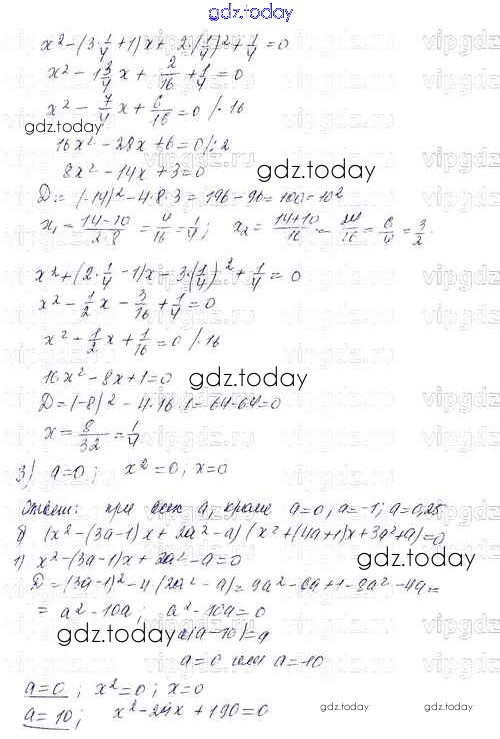 gdz.today
x² - (3·1/4 + 1)x + 2·(1/4)² + 1/4 = 0
x² - 1 3/4 x + 2/16 + 1/4 = 0
x² - 7/4 x + 6/16 = 0 /·16
gdz.today
16x² - 28x + 6 = 0 /:2
8x² - 14x + 3 = 0
gdz.today
D = (-14)² - 4·8·3 = 196 - 96 = 100 = 10²
x₁ = (14-10)/(2·8) = 4/16 = 1/4; x₂ = (14+10)/16 = 24/16 = 6/4 = 3/2.
x² + (2·1/4 - 1)x - 3·(1/4)² + 1/4 = 0
x² - 1/2 x - 3/16 + 1/4 = 0
x² - 1/2 x + 1/16 = 0 /·16
16x² - 8x + 1 = 0
gdz.today
D = (-8)² - 4·16·1 = 64 - 64 = 0
x = 8/32 = 1/4
3) a=0; x²=0; x=0
Ответ: при всех a, кроме a=0; a=-1; a=0,25
б) (x² - (3a-1)x + 2a² - a)(x² + (4a+1)x + 3a² + a) = 0
1) x² - (3a-1)x + 2a² - a = 0
gdz.today
D = (3a-1)² - 4(2a² - a) = 9a² - 6a + 1 - 8a² - 4a =
= a² - 10a; a² - 10a = 0
gdz.today
a(a-10) = 0
a=0 или a=10
a=0; x²=0; x=0
a=10; x² - 29x + 190 = 0
gdz.today
gdz.today
vipgdz.ru